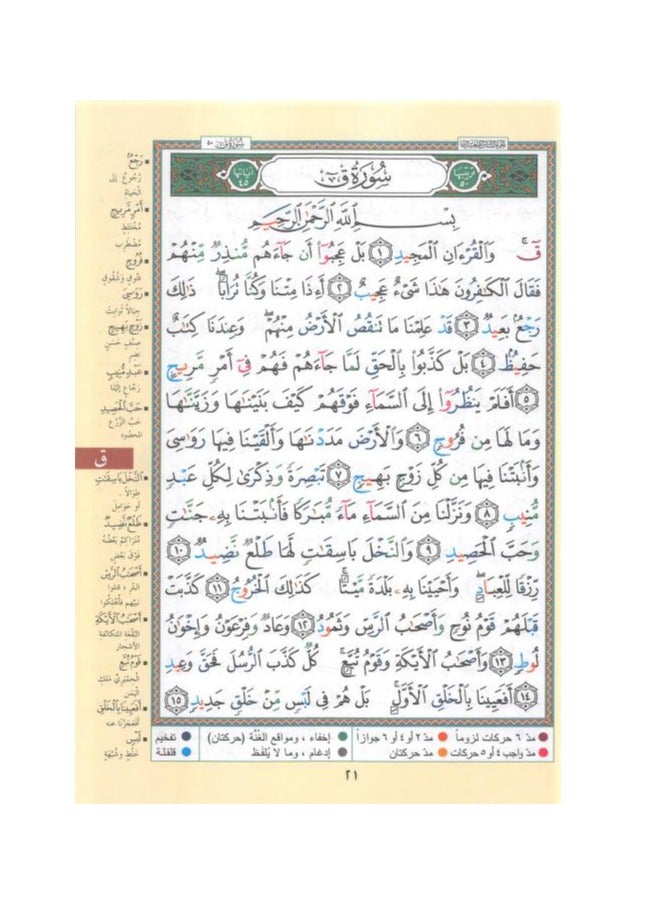 سُورَةُ ق
٤٥
سُورَةُ ق
ترتيبها ٥٠
آياتها ٤٥
بِسْمِ اللَّهِ الرَّحْمَٰنِ الرَّحِيمِ
قٓ ۚ وَالْقُرْءَانِ الْمَجِيدِ ١ بَلْ عَجِبُوٓا۟ أَن جَآءَهُم مُّنذِرٌ مِّنْهُمْ
فَقَالَ الْكَٰفِرُونَ هَٰذَا شَىْءٌ عَجِيبٌ ٢ أَءِذَا مِتْنَا وَكُنَّا تُرَابًا ۖ ذَٰلِكَ
رَجْعٌۢ بَعِيدٌ ٣ قَدْ عَلِمْنَا مَا تَنقُصُ الْأَرْضُ مِنْهُمْ ۖ وَعِندَنَا كِتَٰبٌ
حَفِيظٌۢ ٤ بَلْ كَذَّبُوا۟ بِالْحَقِّ لَمَّا جَآءَهُمْ فَهُمْ فِىٓ أَمْرٍ مَّرِيجٍ
٥ أَفَلَمْ يَنظُرُوٓا۟ إِلَى السَّمَآءِ فَوْقَهُمْ كَيْفَ بَنَيْنَٰهَا وَزَيَّنَّٰهَا
وَمَا لَهَا مِن فُرُوجٍ ٦ وَالْأَرْضَ مَدَدْنَٰهَا وَأَلْقَيْنَا فِيهَا رَوَٰسِىَ
وَأَنۢبَتْنَا فِيهَا مِن كُلِّ زَوْجٍۭ بَهِيجٍ ٧ تَبْصِرَةً وَذِكْرَىٰ لِكُلِّ عَبْدٍ
مُّنِيبٍ ٨ وَنَزَّلْنَا مِنَ السَّمَآءِ مَآءً مُّبَٰرَكًا فَأَنۢبَتْنَا بِهِۦ جَنَّٰتٍ
وَحَبَّ الْحَصِيدِ ٩ وَالنَّخْلَ بَاسِقَٰتٍ لَّهَا طَلْعٌ نَّضِيدٌ ١٠
رِّزْقًا لِّلْعِبَادِ ۖ وَأَحْيَيْنَا بِهِۦ بَلْدَةً مَّيْتًا ۚ كَذَٰلِكَ الْخُرُوجُ ١١ كَذَّبَتْ
قَبْلَهُمْ قَوْمُ نُوحٍ وَأَصْحَٰبُ الرَّسِّ وَثَمُودُ ١٢ وَعَادٌ وَفِرْعَوْنُ وَإِخْوَٰنُ
لُوطٍ ١٣ وَأَصْحَٰبُ الْأَيْكَةِ وَقَوْمُ تُبَّعٍ ۚ كُلٌّ كَذَّبَ الرُّسُلَ فَحَقَّ وَعِيدِ
١٤ أَفَعَيِينَا بِالْخَلْقِ الْأَوَّلِ ۚ بَلْ هُمْ فِى لَبْسٍ مِّنْ خَلْقٍ جَدِيدٍ ١٥
رَجْعٌ
رُجُوعٌ إلى
الحَيَاةِ
أَمْرٍ مَّرِيجٍ
مُخْتَلِطٍ
مُضْطَرِبٍ
فُرُوجٍ
فُتُوقٍ وَشُقُوقٍ
رَوَٰسِىَ
جِبَالاً ثَوَابِتَ
زَوْجٍ بَهِيجٍ
صِنْفٍ حَسَنٍ
نَضِرٍ
عَبْدٍ مُّنِيبٍ
رَجَّاعٍ إلَيْنَا
حَبَّ الْحَصِيدِ
حَبَّ الزَّرْعِ
المَحْصُودِ
ق
النَّخْلَ بَاسِقَٰتٍ
طِوَالاً
أو حَوَامِلَ
طَلْعٌ نَّضِيدٌ
مُتَرَاكِمٌ بَعْضُهُ
فَوْقَ بَعْضٍ
أَصْحَٰبُ الرَّسِّ
البِئْرِ ؛ قَتَلُوا
نَبِيَّهُم فَأُهْلِكُوا
أَصْحَٰبُ الْأَيْكَةِ
البُقْعَةِ المُتَكَاثِفَةِ
الأشْجَارِ
قَوْمُ تُبَّعٍ
الحِمْيَرِيِّ مَلِكِ
اليَمَنِ
أَفَعَيِينَا بِالْخَلْقِ
أفَعَجَزْنَا عنه
لَبْسٍ
خَلْطٍ وشُبْهَةٍ
مدّ ٦ حركات لزوماً مدّ ٢ أو ٤ أو ٦ جوازاً إخفاء ، ومواقع الغُنَّة (حركتان) تفخيم
مدّ واجب ٤ أو ٥ حركات مدّ حركتان إدغام ، وما لا يُلفَظ قلقلة
٢١